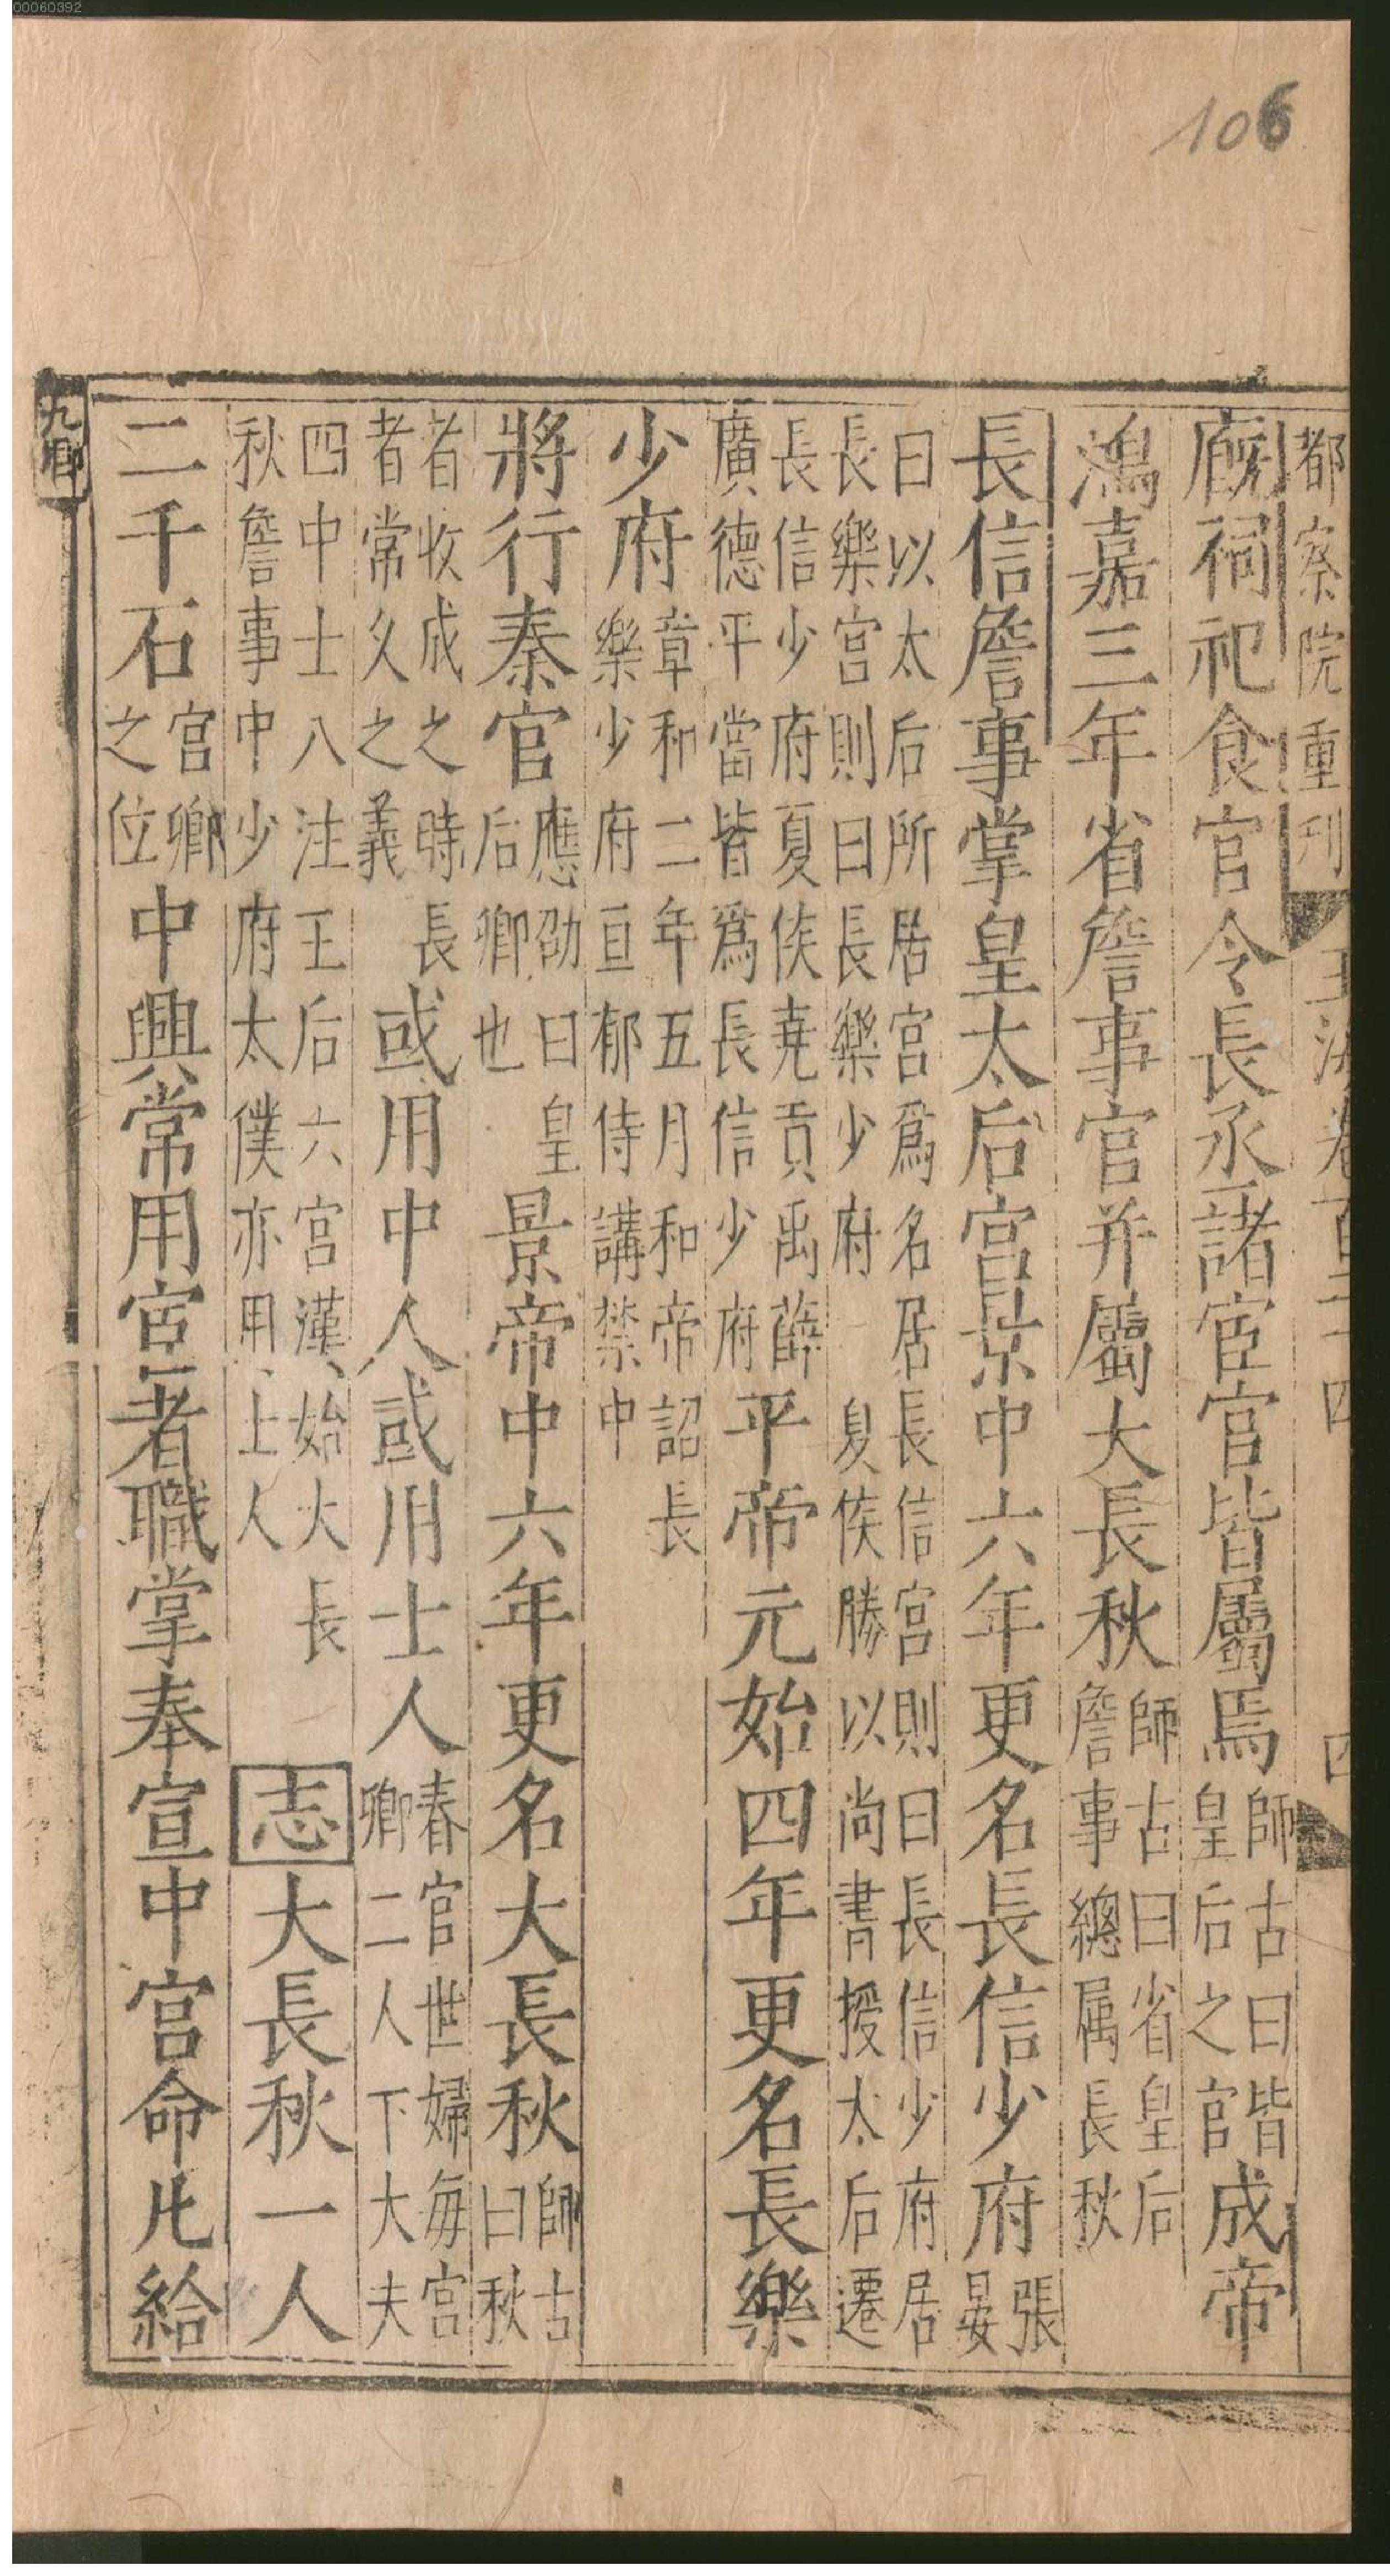 00060392
106
都察院重刊 玉海卷百二十四 四
廚祠祀食官令長丞諸宦官皆屬焉師古曰皆皇后之官成帝
鴻嘉三年省詹事官并屬大長秋師古曰省皇后詹事總属長秋
長信詹事掌皇太后宮景中六年更名長信少府張晏
曰以太后所居宮爲名居長信宮則曰長信少府居
長樂宮則曰長樂少府 夏侯勝以尚書授太后遷
長信少府夏侯堯貢禹薛廣德平當皆爲長信少府平帝元始四年更名長樂
少府章和二年五月和帝詔長樂少府亘郁侍講禁中
將行秦官應劭曰皇后卿也景帝中六年更名大長秋師古曰秋
者收成之時長者常久之義或用中人或用士人春官世婦每宮卿二人下大夫
四中士八注王后六宮漢始大長秋詹事中少府太僕亦用士人 志大長秋一人
二千石宮卿之位中興常用宦者職掌奉宣中宮命凡給
九卿